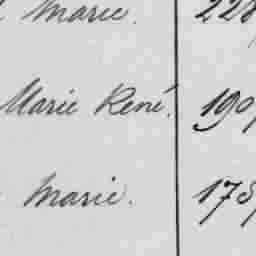 Marie. 228
Marie René. 190
Marie. 175